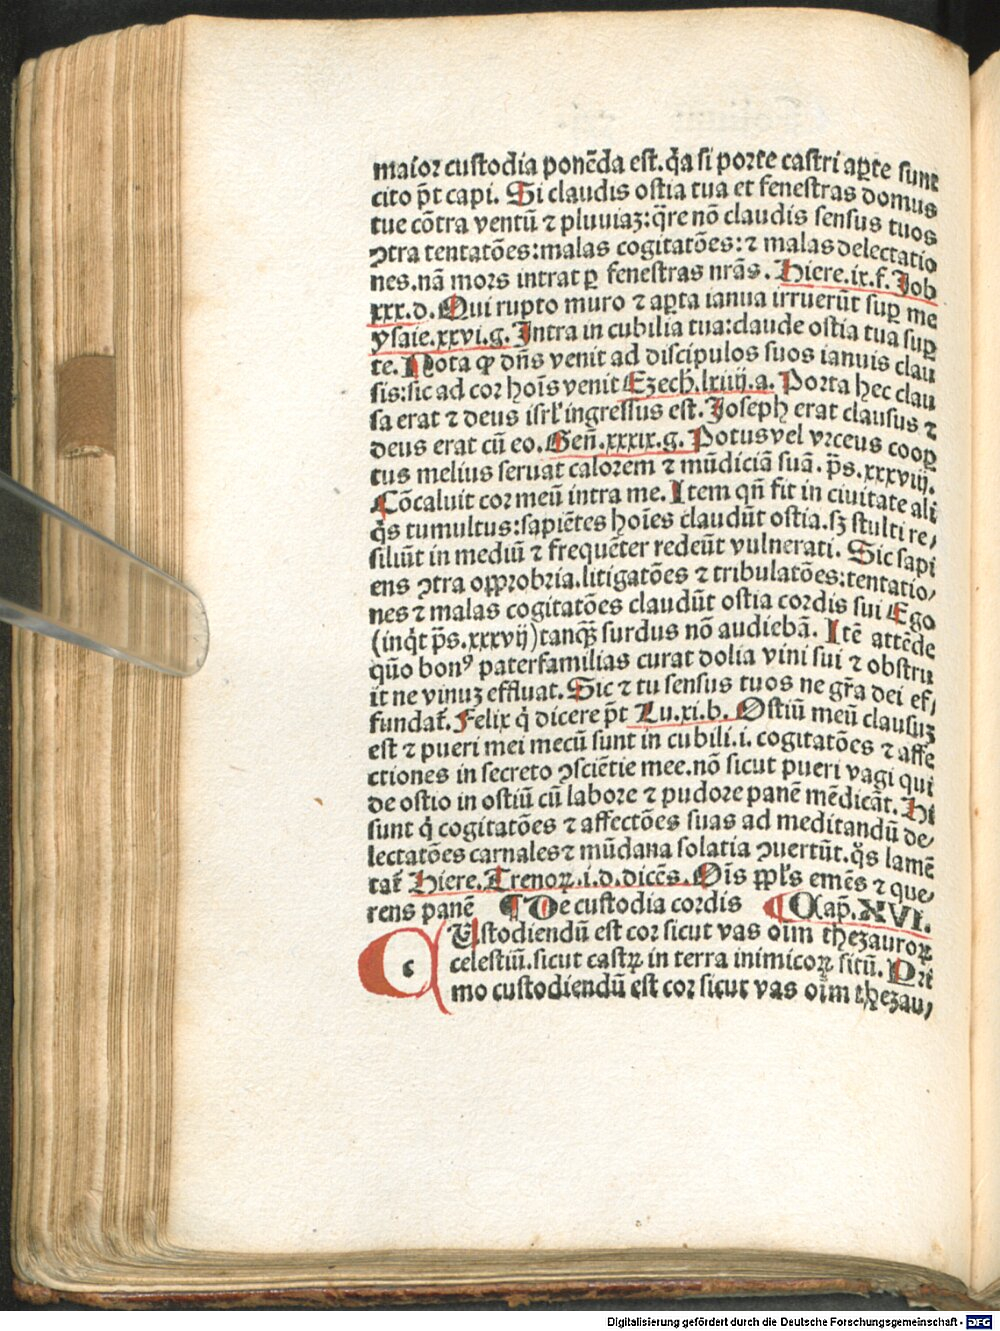 maior custodia ponēda est. q̄a si porte castri apte sunt
cito p̄t capi. Si claudis ostia tua et fenestras domus
tue cōtra ventū ⁊ pluuiaꝫ: q̄re nō claudis sensus tuos
ꝯtra tentatōes: malas cogitatōes: ⁊ malas delectatio
nes. nā mors intrat ꝑ fenestras nr̄as. Hiere. ix. f. Job
xxx. d. Qui rupto muro ⁊ aꝑta ianua irruerūt suꝑ me
ysaie. xxvi. g. Intra in cubilia tua: claude ostia tua suꝑ
te. Nota ꝙ dn̄s venit ad discipulos suos ianuis clau
sis: sic ad cor hoīs venit Ezech. lxiiij. a. Porta hec clau
sa erat ⁊ deus isrl̓ ingressus est. Joseph erat clausus ⁊
deus erat cū eo. Gen̄. xxxix. g. Potus vel vrceus cooꝑ
tus melius seruat calorem ⁊ mūdiciā suā. p̄s. xxxviij.
Cōcaluit cor meū intra me. Item qn̄ fit in ciuitate ali
q̄s tumultus: sapiētes hoīes claudūt ostia. sꝫ stulti re,
siliūt in mediū ⁊ frequēter redeūt vulnerati. Sic sapi
ens ꝯtra opꝓbria. litigatōes ⁊ tribulatōes: tentatio,
nes ⁊ malas cogitatōes claudūt ostia cordis sui Ego
(inq̄t p̄s. xxxvij) tanqꝫ̄ surdus nō audiebā. Itē attēde
quō bonꝰ paterfamilias curat dolia vini sui ⁊ obstru
it ne vinuꝫ effluat. Sic ⁊ tu sensus tuos ne gr̄a dei ef,
fundat̄. Felix q̇ dicere p̄t Lu. xi. b. Ostiū meū clausuꝫ
est ⁊ pueri mei mecū sunt in cubili. i. cogitatōes ⁊ affe
ctiones in secreto ꝯsciētie mee. nō sicut pueri vagi qui
de ostio in ostiū cū labore ⁊ pudore panē mēdicāt. Hi
sunt q̇ cogitatōes ⁊ affectōes suas ad meditandū de,
lectatōes carnales ⁊ mūdana solatia ꝯuertūt. q̄s lamē
tat̄ Hiere. Trenoꝝ. i. d. dicēs. Oīs ppl̓s emēs ⁊ que,
rens panē ¶ De custodia cordis ¶ Cap̄. XVI.
c Ustodiendū est cor sicut vas oīm thezauroꝝ
celestiū. sicut castꝝ in terra inimicoꝝ sitū. Pri
mo custodiendū est cor sicut vas oīm thezau,
Digitalisierung gefördert durch die Deutsche Forschungsgemeinschaft - DFG